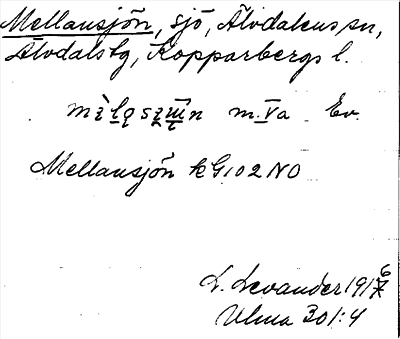 Mellansjön, sjö, Älvdalens sn,
Älvdals tg, Kopparbergs l.
m. Va Ev.
Mellansjön kG102NO
L. Levander 1916
Ulma 301:4